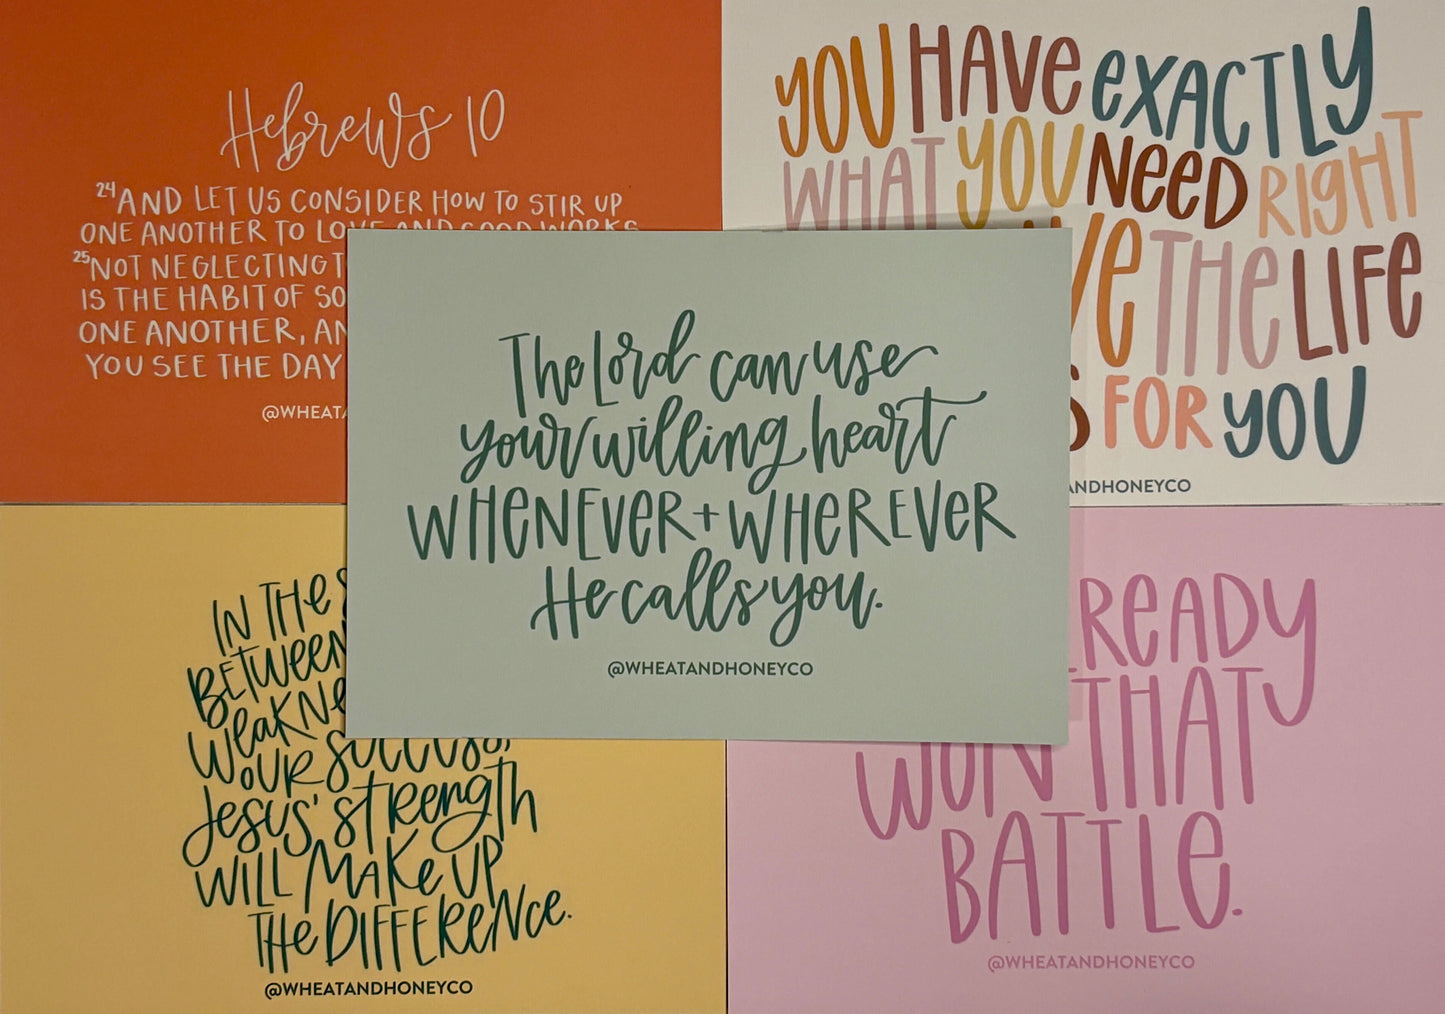 Hebrews 10
24 AND LET US CONSIDER HOW TO STIR UP
ONE ANOTHER TO LOVE AND GOOD WORKS
25 NOT NEGLECTING
IS THE HABIT OF
ONE ANOTHER,
YOU SEE THE DAY
YOU HAVE EXACTLY
WHAT YOU NEED RIGHT
THE LIFE
FOR YOU
The Lord can use
your willing heart
WHENEVER + WHEREVER
He calls you.
@WHEATANDHONEYCO
IN THE
BETWEEN
OUR
JESUS' STRENGTH
WILL MAKE UP
THE DIFFERENCE.
@WHEATANDHONEYCO
WON THAT
BATTLE.
@WHEATANDHONEYCO